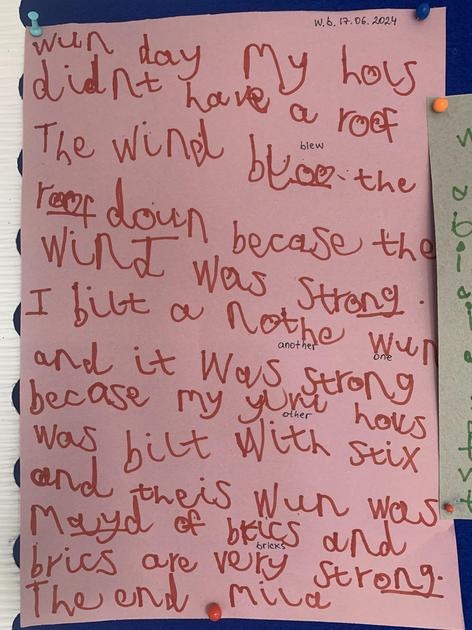 W.b. 17.06.2024
wun day My hous
didnt have a roof
The wind bloo. the
blew
roof doun
WinD becase the
was strong.
I bilt a Nothe wun
another
one
and it Was strong
becase my yuvu hous
other
was bilt With stix
and theis wun was
Mayd of brics and
bricks
brics are very strong.
The end Mila